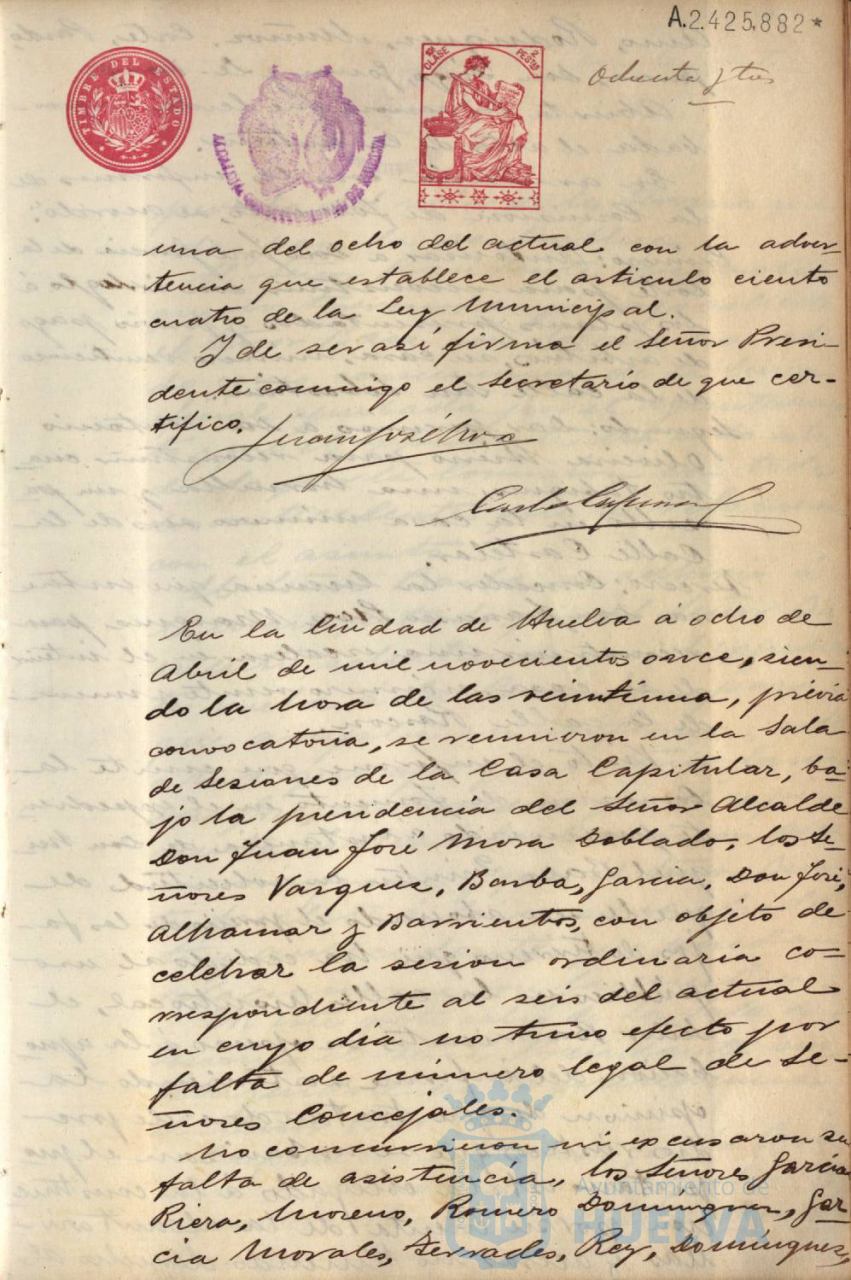 A.2.425.882*
TIMBRE DEL ESTADO
CLASE
PESTAS
Ochenta y tres
una del ocho del actual con la adver-
tencia que establece el articulo ciento
cuatro de la Ley Municipal.
Y de ser así firma el Señor Presi-
dente conmigo el Secretario de que cer-
tifico.
Juan José Mora
En la Ciudad de Huelva á ocho de
Abril de mil novecientos once, sien-
do la hora de las veintiuna, prévia
convocatoria, se reunieron en la Sala
de Sesiones de la Casa Capitular, ba-
jo la presidencia del Señor Alcalde
Don Juan José Mora Doblado, los Se-
ñores Vazquez, Barba, Garcia, Don José,
Alhamar y Barrientos, con objeto de
celebrar la sesion ordinaria co-
rrespondiente al seis del actual
en cuyo dia no tuvo efecto por
falta de número legal de Se-
ñores Concejales.
No concurrieron ni excusaron su
falta de asistencia, los Señores García
Riera, Moreno, Romero Domínguez, Gar-
cia Morales, Serrades, Rey, Domínguez,
Ayuntamiento de
HUELVA